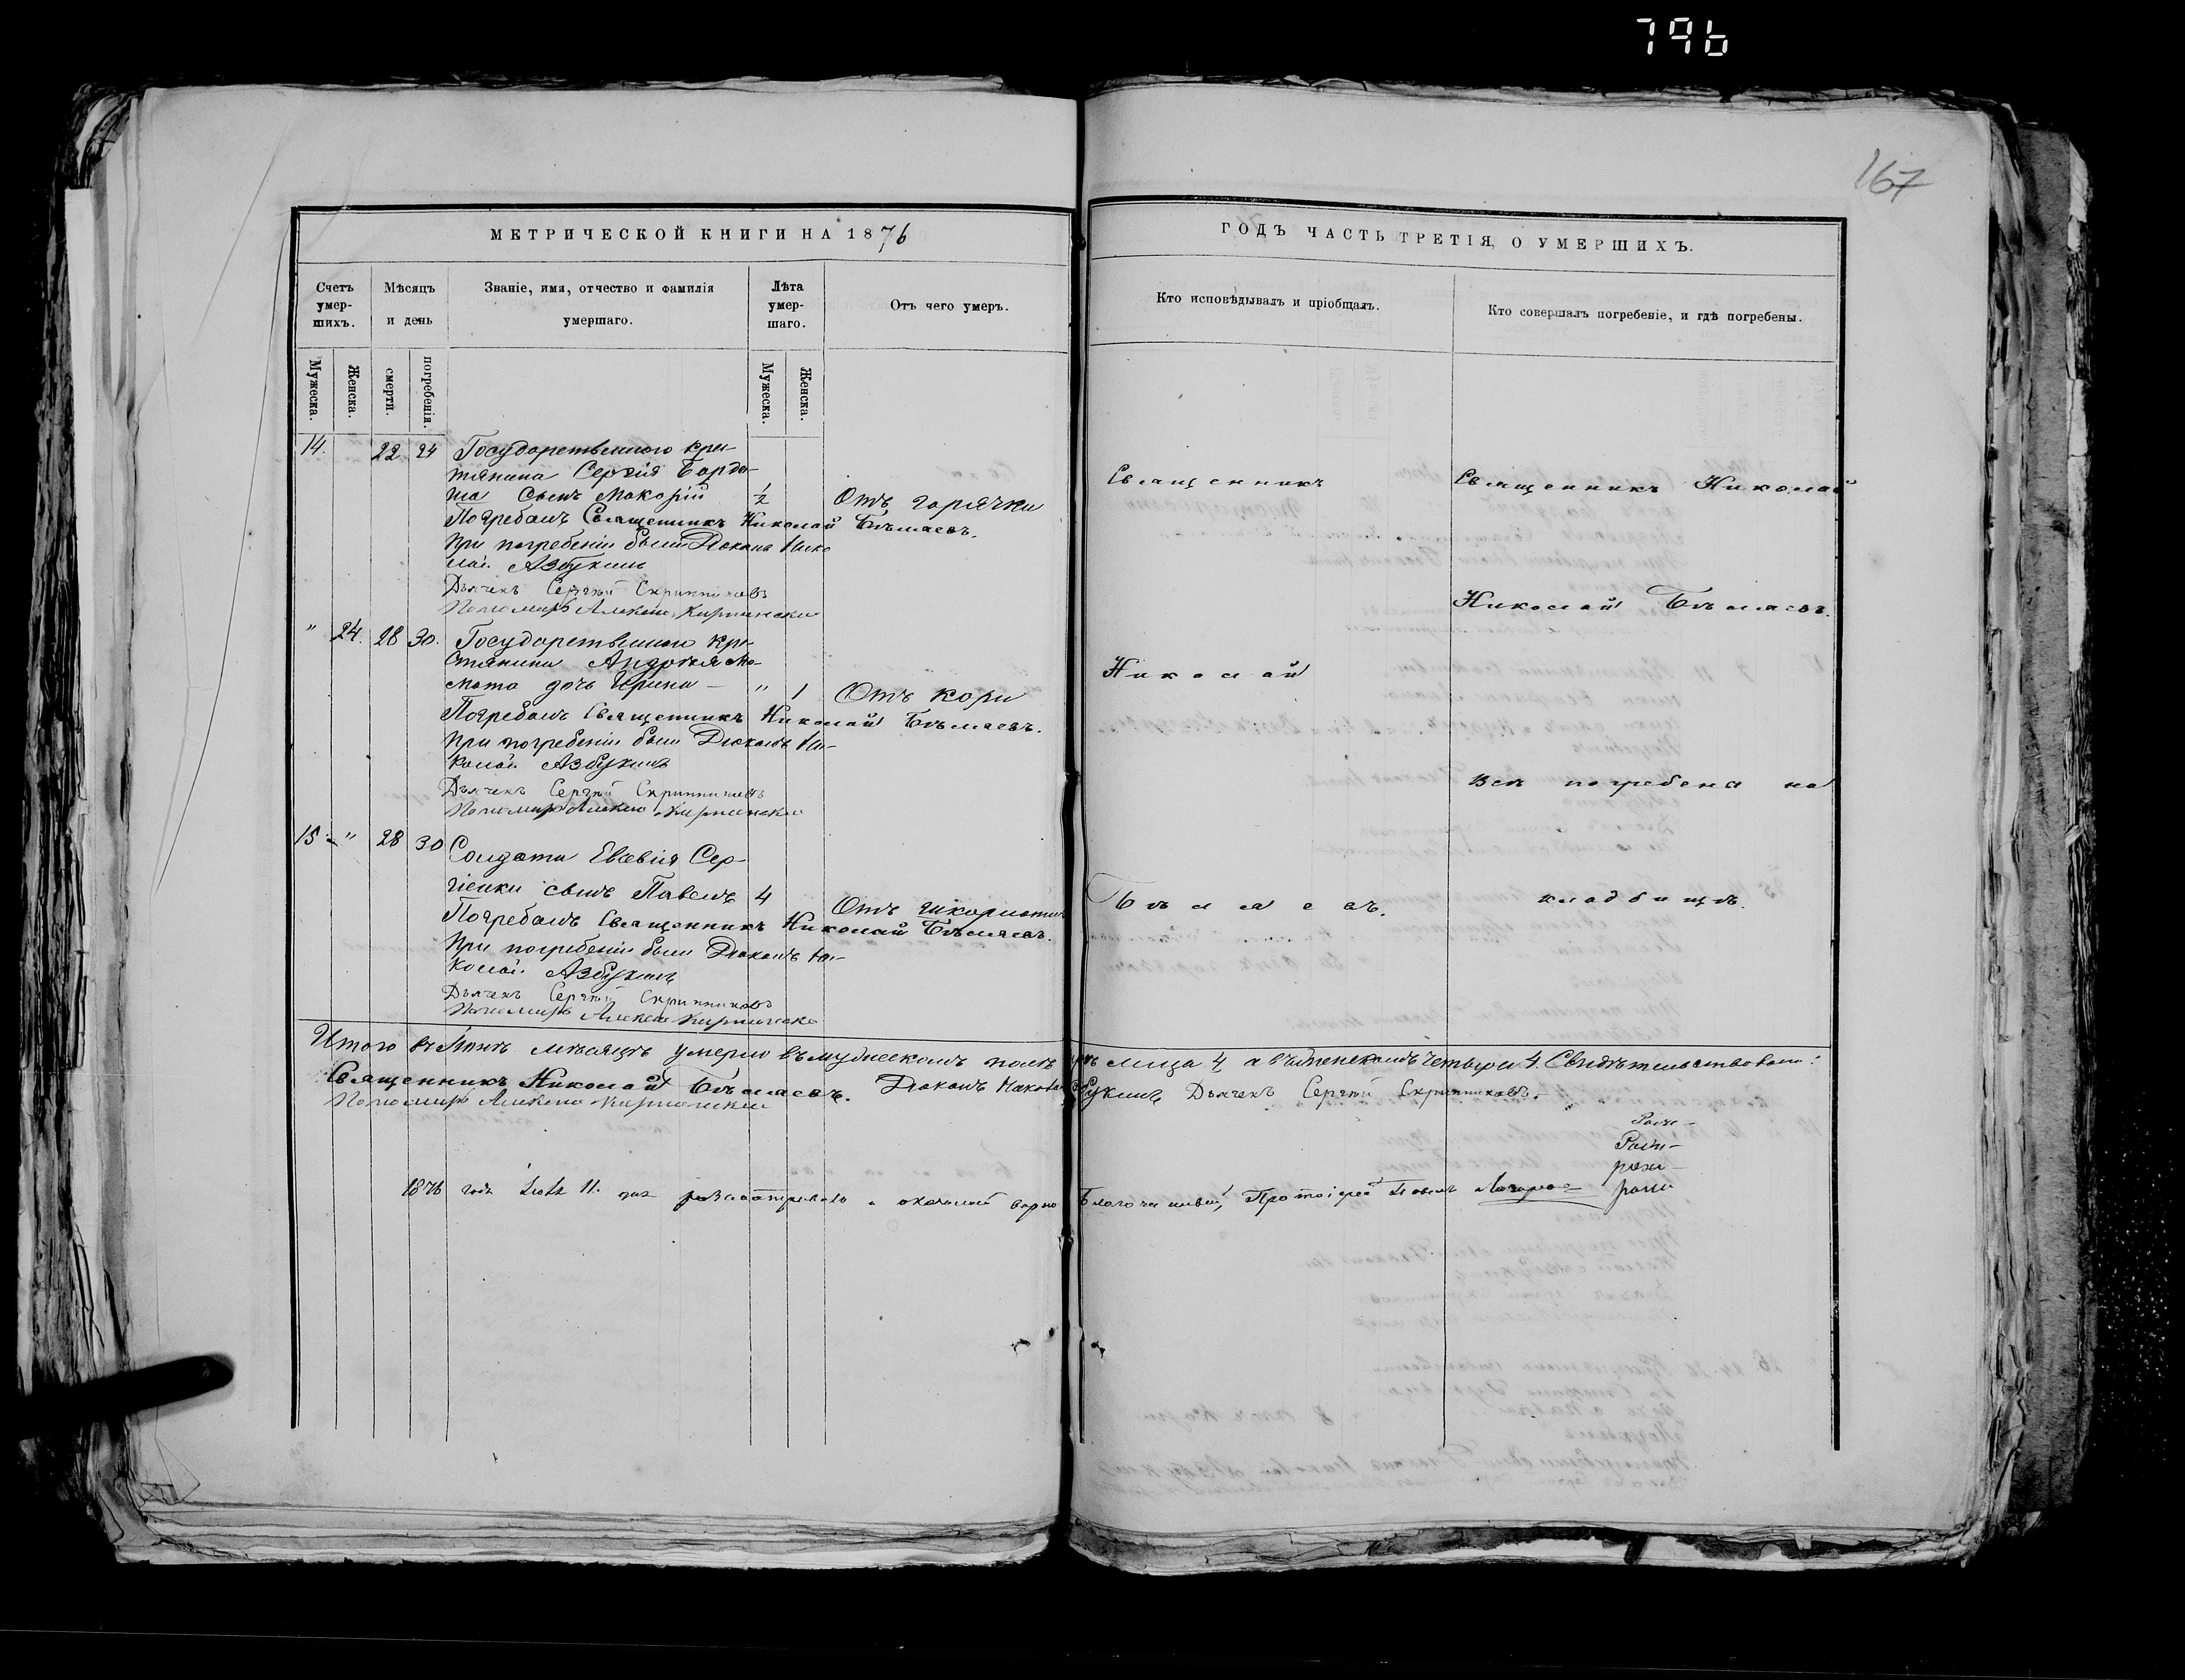 796
167
МЕТРИЧЕСКОЙ КНИГИ НА 1876
ГОДЪ ЧАСТЬ ТРЕТІЯ, О УМЕРШИХЪ.
Счетъ умер-
шихъ.
Мѣсяцъ
и день
Званіе, имя, отчество и фамилія
умершаго.
Лѣта
умер-
шаго.
Отъ чего умеръ.
Кто исповѣдывалъ и пріобщалъ.
Кто совершалъ погребеніе, и гдѣ погребены.
Мужеска.
Женска.
смерти.
погребенія.
Мужеска.
Женска.
14. 22 24 Государственнаго кре-
стянина Сергія
сынъ Макорій 1/2 Отъ горячки
Погребалъ Священникъ Николай Бѣляевъ.
При погребеніи были Діаконъ Нико
лай Азбукинъ
Дьячекъ Сергѣй Скрипниковъ
Пономарь Алексѣй
" 24. 28 30. Государственнаго кре-
стянина
дочь Ирина " 1 Отъ кори
Погребалъ Священникъ Николай Бѣляевъ.
При погребеніи были Діаконъ Ни-
колай Азбукинъ
Дьячекъ Сергѣй Скрипниковъ
Пономарь Алексѣй
15 " 28 30 Солдата Евсевія Сер-
гіенки сынъ Павелъ 4 Отъ
Погребалъ Священникъ Николай Бѣляевъ.
При погребеніи были Діаконъ Ни-
колай Азбукинъ
Дьячекъ Сергѣй Скрипниковъ
Пономарь Алексѣй
Священникъ
Николай
Бѣляевъ.
Священникъ Николай
Николай Бѣляевъ.
Всѣ погребены на
кладбищѣ.
Итого въ мѣсяцѣ умерло въ мужескомъ полѣ лица 4 а въ женскомъ четыри 4. Свидѣтельствовали:
Священникъ Николай Бѣляевъ. Діаконъ Николай Азбукинъ Дьячекъ Сергѣй Скрипниковъ.
Пономарь Алексѣй
1876 года 11. дня Благочинный, Протоіерей Павелъ